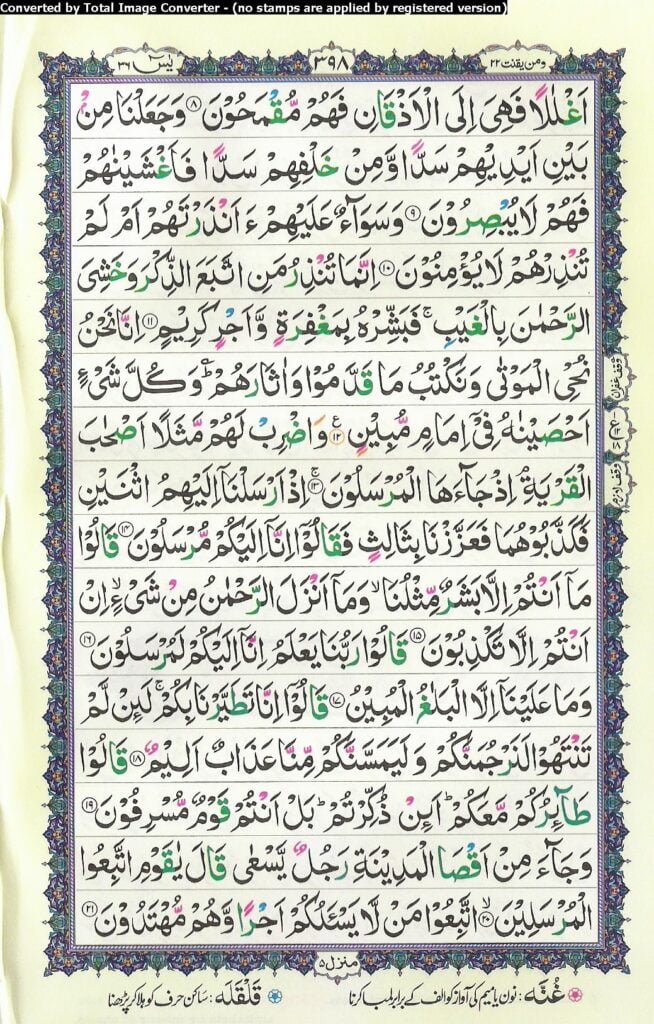 Converted by Total Image Converter - (no stamps are applied by registered version)
ومن یقنت ۲۲
۳۹۸
یٰسٓ ۳۶
اَغْلٰلًا فَهِیَ اِلَی الْاَذْقَانِ فَهُمْ مُّقْمَحُوْنَ ۝۸ وَجَعَلْنَا مِنْۢ
بَیْنِ اَیْدِیْهِمْ سَدًّا وَّمِنْ خَلْفِهِمْ سَدًّا فَاَغْشَیْنٰهُمْ
فَهُمْ لَا یُبْصِرُوْنَ ۝۹ وَسَوَآءٌ عَلَیْهِمْ ءَاَنْذَرْتَهُمْ اَمْ لَمْ
تُنْذِرْهُمْ لَا یُؤْمِنُوْنَ ۝۱۰ اِنَّمَا تُنْذِرُ مَنِ اتَّبَعَ الذِّكْرَ وَخَشِیَ
الرَّحْمٰنَ بِالْغَیْبِ ۚ فَبَشِّرْهُ بِمَغْفِرَةٍ وَّاَجْرٍ كَرِیْمٍ ۝۱۱ اِنَّا نَحْنُ
نُحْیِ الْمَوْتٰی وَنَكْتُبُ مَا قَدَّمُوْا وَاٰثَارَهُمْ ؕ وَكُلَّ شَیْءٍ
وقف غفران
اَحْصَیْنٰهُ فِیْۤ اِمَامٍ مُّبِیْنٍ ۝۱۲ ع وَاضْرِبْ لَهُمْ مَّثَلًا اَصْحٰبَ
الْقَرْیَةِ ۘ اِذْ جَآءَهَا الْمُرْسَلُوْنَ ۝۱۳ ۚ اِذْ اَرْسَلْنَاۤ اِلَیْهِمُ اثْنَیْنِ
فَكَذَّبُوْهُمَا فَعَزَّزْنَا بِثَالِثٍ فَقَالُوْۤا اِنَّاۤ اِلَیْكُمْ مُّرْسَلُوْنَ ۝۱۴ قَالُوْا
مَاۤ اَنْتُمْ اِلَّا بَشَرٌ مِّثْلُنَا ۙ وَمَاۤ اَنْزَلَ الرَّحْمٰنُ مِنْ شَیْءٍ ۙ اِنْ
اَنْتُمْ اِلَّا تَكْذِبُوْنَ ۝۱۵ قَالُوْا رَبُّنَا یَعْلَمُ اِنَّاۤ اِلَیْكُمْ لَمُرْسَلُوْنَ ۝۱۶
وَمَا عَلَیْنَاۤ اِلَّا الْبَلٰغُ الْمُبِیْنُ ۝۱۷ قَالُوْۤا اِنَّا تَطَیَّرْنَا بِكُمْ ۚ لَئِنْ لَّمْ
تَنْتَهُوْا لَنَرْجُمَنَّكُمْ وَلَیَمَسَّنَّكُمْ مِّنَّا عَذَابٌ اَلِیْمٌ ۝۱۸ قَالُوْا
طَآئِرُكُمْ مَّعَكُمْ ؕ اَئِنْ ذُكِّرْتُمْ ؕ بَلْ اَنْتُمْ قَوْمٌ مُّسْرِفُوْنَ ۝۱۹
وَجَآءَ مِنْ اَقْصَا الْمَدِیْنَةِ رَجُلٌ یَّسْعٰی قَالَ یٰقَوْمِ اتَّبِعُوا
الْمُرْسَلِیْنَ ۝۲۰ ۙ اتَّبِعُوْا مَنْ لَّا یَسْئَلُكُمْ اَجْرًا وَّهُمْ مُّهْتَدُوْنَ ۝۲۱
منزل ۵
غُنّه: نون یا میم کی آواز کو الف کے برابر لمبا کرنا
قَلْقَلَه: ساکن حرف کو ہلا کر پڑھنا